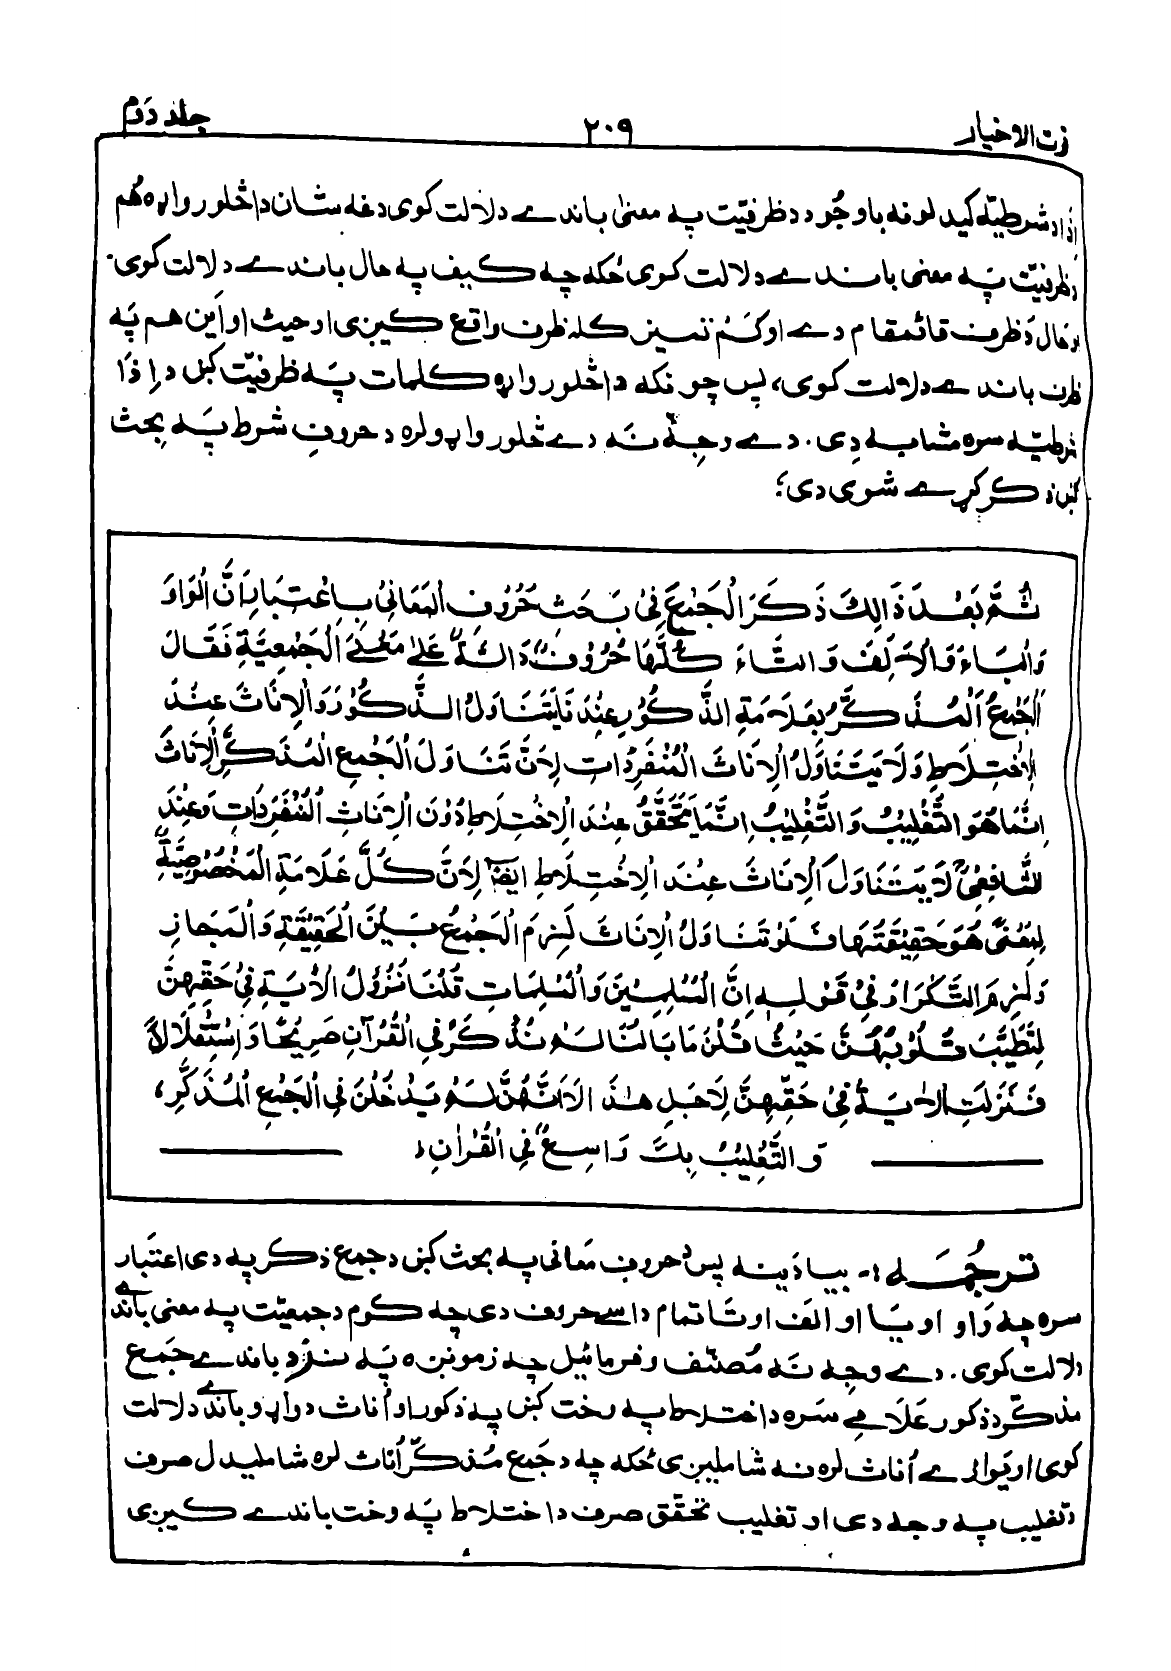 جلد دوم ۲۰۹ زت الاخیار
اذا د شرطیّه کیدلو نه باوجُود د ظرفیّت په معنیٰ باندے دلالت کوی دغه شان دا څلور واړه هُم
ظرفیّت په معنی باندے دلالت کوی ځکه چه کیف په حال باندے دلالت کوی.
او حال دَ ظرف قائمقام دے او کَمْ تمیز کله ظرف واقع کیږی او حیث او اَین هم په
ظرف باندے دلالت کوی، پس چونکه دا څلور واړه کلمات په ظرفیّت کښ د اِذَا
شرطیّه سره مشابه دِی. دے وجهے نه دے څلور واړو لره د حروفِ شرط په بحث
کښ ذکر کړے شوی دی؛
ثُمَّ بَعْدَ ذَالِكَ ذَكَرَ الْجَمْعَ فِيْ بَحَثِ حُرُوْفِ الْمَعَانِيْ بِاعْتِبَارِ اَنَّ الْوَاوَ
وَالْيَاءَ وَالْاَلِفَ وَالتَّاءَ كُلَّهَا حُرُوْفٌ دَالَّةٌ عَلٰى مَعْنَى الْجَمْعِيَّةِ فَقَالَ
اَلْجَمْعُ الْمُذَكَّرُ بِعَلَامَةِ الذُّكُوْرِ عِنْدَنَا يَتَنَاوَلُ الذُّكُوْرَ وَالْاِنَاثَ عِنْدَ
الْاِخْتِلَاطِ وَلَا يَتَنَاوَلُ الْاِنَاثَ الْمُنْفَرِدَاتِ لِاَنَّ تَنَاوُلَ الْجَمْعِ الْمُذَكَّرِ الْاِنَاثَ
اِنَّمَا هُوَ التَّغْلِيْبُ وَالتَّغْلِيْبُ اِنَّمَا يَتَحَقَّقُ عِنْدَ الْاِخْتِلَاطِ دُوْنَ الْاِنَاثِ الْمُنْفَرِدَاتِ وَعِنْدَ
الشَّافِعِيِّ لَا يَتَنَاوَلُ الْاِنَاثَ عِنْدَ الْاِخْتِلَاطِ اَيْضًا لِاَنَّ كُلَّ عَلَامَةِ الْمَخْصُوْصِيَّةِ
لِمَعْنًى هُوَ حَقِيْقَتُهَا فَلَوْ تَنَاوَلُ الْاِنَاثَ لَزِمَ الْجَمْعُ بَيْنَ الْحَقِيْقَةِ وَالْمَجَازِ
وَلَزِمَ التَّكْرَارُ فِيْ قَوْلِهِ اِنَّ الْمُسْلِمِيْنَ وَالْمُسْلِمَاتِ قُلْنَا نُزُوْلُ الْاٰيَةِ فِيْ حَقِّهِنَّ
لِتَطَيُّبِ قُلُوْبِهِنَّ حَيْثُ قُلْنَ مَا بَالُنَا لَمْ نُذْكَرْ فِي الْقُرْآنِ صَرِيْحًا وَاسْتِقْلَالًا
فَنَزَلَتِ الْاٰيَةُ فِيْ حَقِّهِنَّ لِاَجَلِ هٰذَا لَا اَنَّهُنَّ لَمْ يَدْخُلْنَ فِي الْجَمْعِ الْمُذَكَّرِ،
وَالتَّغْلِيْبُ بِكَ وَاسِعٌ فِي الْقُرْاٰنِ؛
ترجُمَه :- بیا دینه پس د حروفِ مَعانی په بحث کښ د جمع ذکر په دی اعتبار
سره چه وَاو او یَا او الف او تَا تمام داسے حروف دی چه کوم د جمعیّت په معنی باندے
دلالت کوی. دے وجه نه مُصنّف وفرمائیل چه زمونږه په نزد باندے جَمع
مذکّر د ذکور عَلَامے سَره د اختلاط په وخت کښ په ذکور او اُناث دواړو باندے دلالت
کوی او یوازے اُناث لره نه شاملیږی ځکه چه د جَمع مُذکّر اُناث لره شاملیدل صرف
د تغلیب په وجه دی او تغلیب تحقق صرف د اختلاط په وخت باندے کیږی